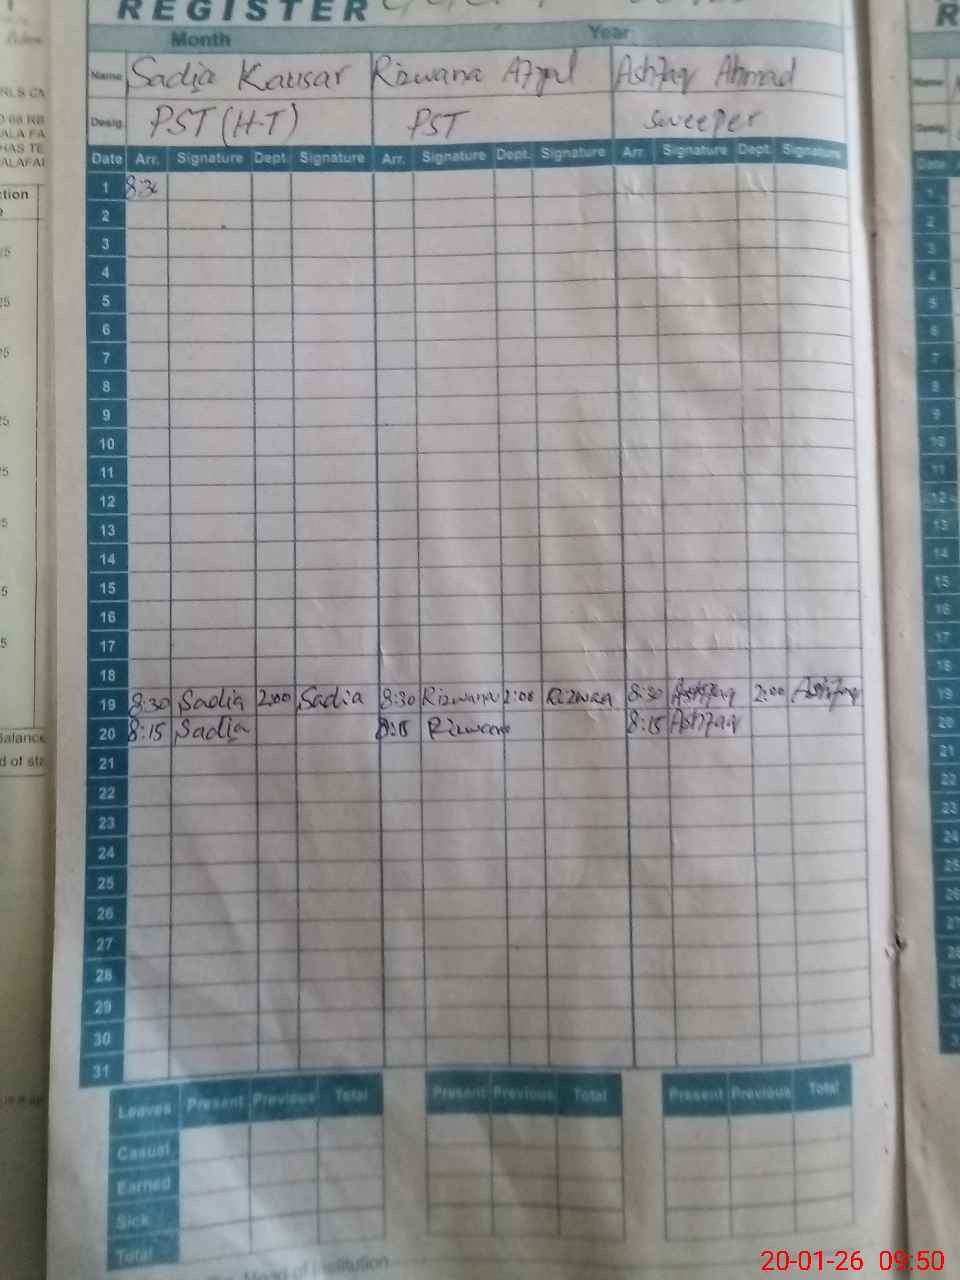 REGISTER
Month Year
Name Sadia Kausar Rizwana Afzal Ashfaq Ahmad
Desig. PST (H-T) PST sweeper
Date Arr. Signature Dept. Signature Arr. Signature Dept. Signature Arr. Signature Dept. Signature
1 8:30
2
3
4
5
6
7
8
9
10
11
12
13
14
15
16
17
18
19 8:30 Sadia 2:00 Sadia 8:30 Rizwana 2:00 Rizwana 8:30 Ashfaq 2:00 Ashfaq
20 8:15 Sadia 8:15 Rizwana 8:15 Ashfaq
21
22
23
24
25
26
27
28
29
30
31
Leaves Present Previous Total Present Previous Total Present Previous Total
Casual
Earned
Sick
Total
Head of Institution
20-01-26 09:50